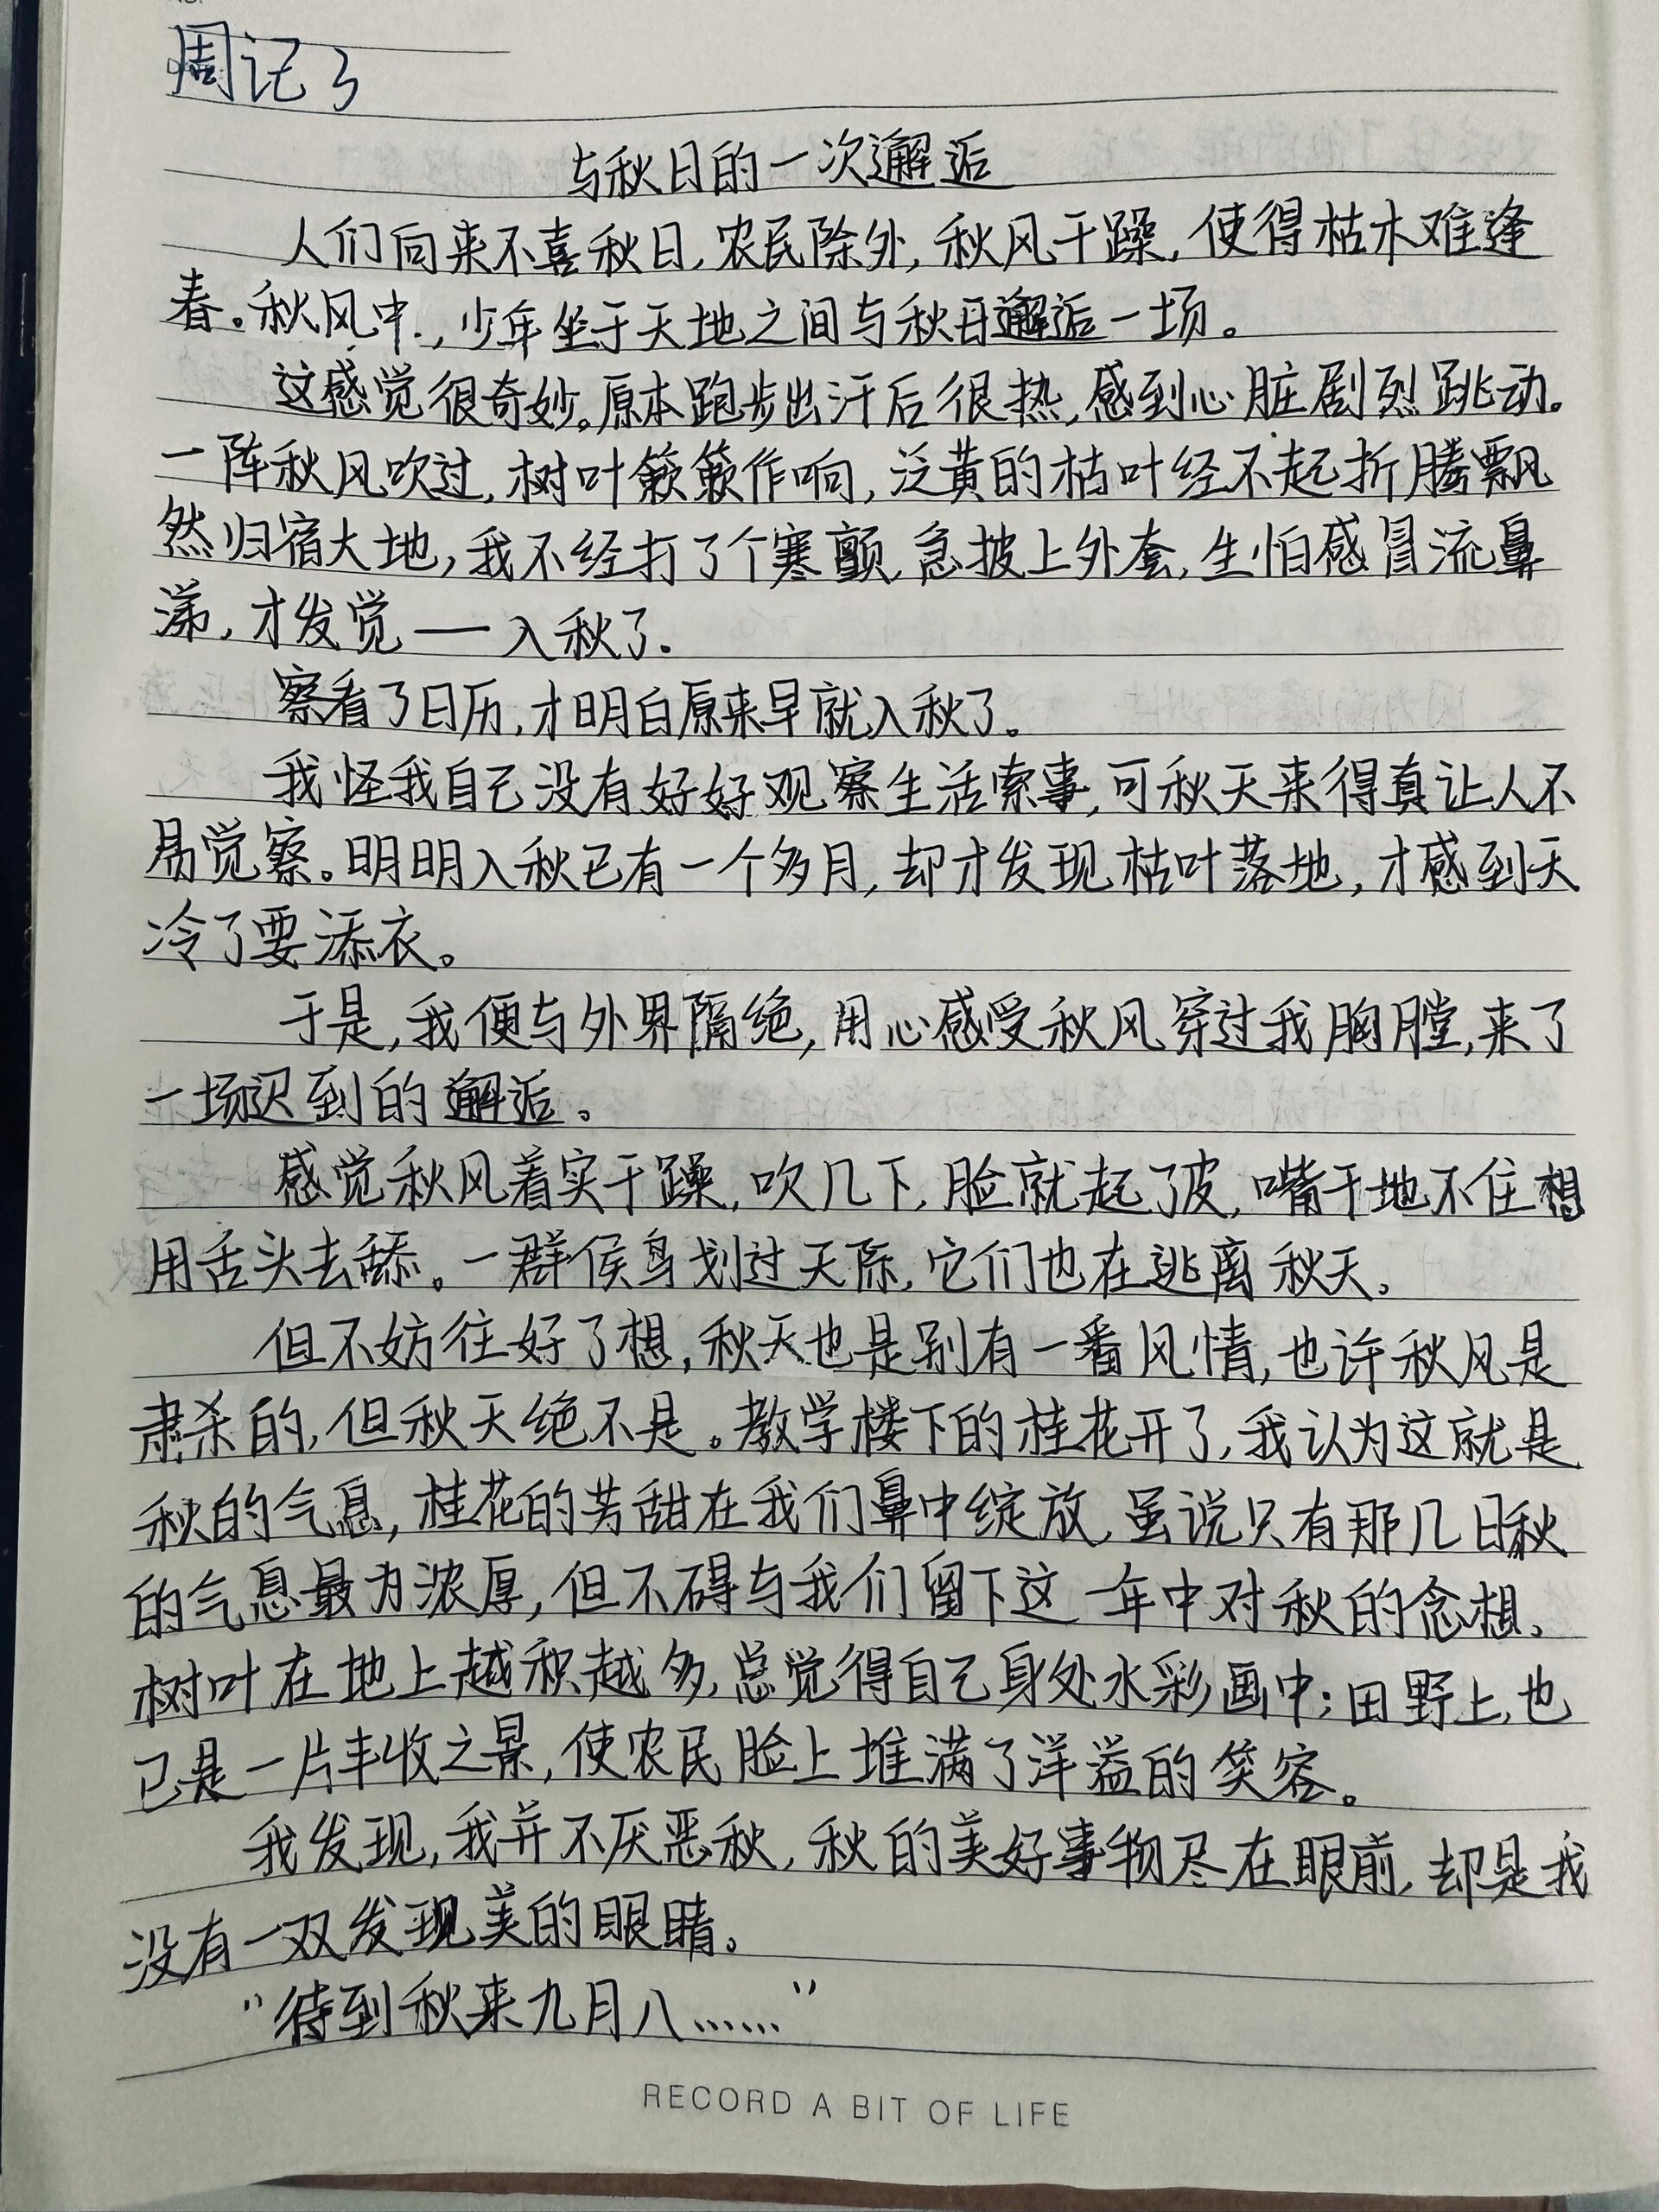 周记3
与秋日的一次邂逅
人们向来不喜秋日,农民除外,秋风干躁,使得枯木难逢
春。秋风中,少年坐于天地之间与秋日邂逅一场。
这感觉很奇妙。原本跑步出汗后很热,感到心脏剧烈跳动。
一阵秋风吹过,树叶簌簌作响,泛黄的枯叶经不起折腾飘
然归宿大地,我不经打了个寒颤,急披上外套,生怕感冒流鼻
涕,才发觉——入秋了.
察看了日历,才明白原来早就入秋了。
我怪我自己没有好好观察生活索事,可秋天来得真让人不
易觉察。明明入秋已有一个多月,却才发现枯叶落地,才感到天
冷了要添衣。
于是,我便与外界隔绝,用心感受秋风穿过我胸膛,来了
一场迟到的邂逅。
感觉秋风着实干躁,吹几下,脸就起了皮,嘴干地不住想
用舌头去舔。一群侯鸟划过天际,它们也在逃离秋天。
但不妨往好了想,秋天也是别有一番风情,也许秋风是
肃杀的,但秋天绝不是。教学楼下的桂花开了,我认为这就是
秋的气息,桂花的芳甜在我们鼻中绽放,虽说只有那几日秋
的气息最为浓厚,但不碍与我们留下这一年中对秋的念想。
树叶在地上越积越多,总觉得自己身处水彩画中;田野上,也
已是一片丰收之景,使农民脸上堆满了洋溢的笑容。
我发现,我并不厌恶秋,秋的美好事物尽在眼前,却是我
没有一双发现美的眼睛。
“待到秋来九月八……”
RECORD A BIT OF LIFE